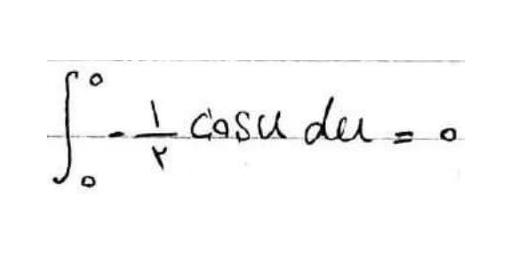 ∫₀⁰ -\frac{۱}{۲} cosu du = 0